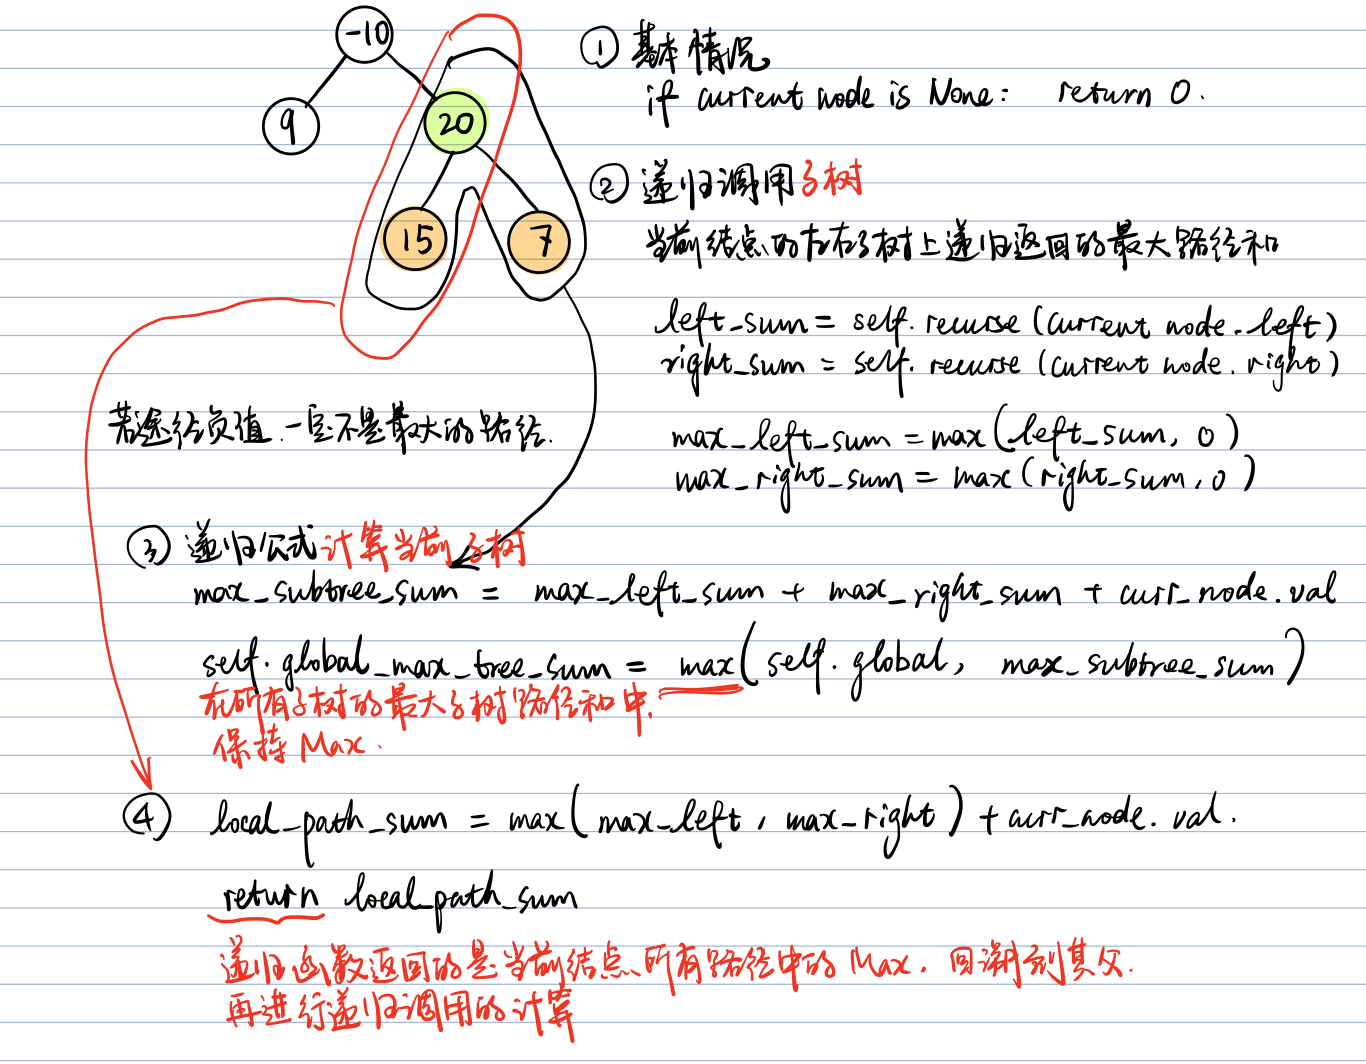 -10
9
20
15
7
① 基本情况
if current node is None: return 0.
② 递归调用子树
当前结点的左右子树上递归返回的最大路径和
left_sum = self.recurse(current node.left)
right_sum = self.recurse(current node.right)
若途径负值.一定不是最大的路径.
max_left_sum = max(left_sum, 0)
max_right_sum = max(right_sum, 0)
③ 递归公式计算当前子树
max_subtree_sum = max_left_sum + max_right_sum + curr_node.val
self.global_max_tree_sum = max(self.global, max_subtree_sum)
在所有子树的最大子树路径和中.
保持Max.
④ local_path_sum = max(max_left, max_right) + curr_node.val.
return local_path_sum
递归函数返回的是当前结点所有路径中的Max. 回溯到其父.
再进行递归调用的计算